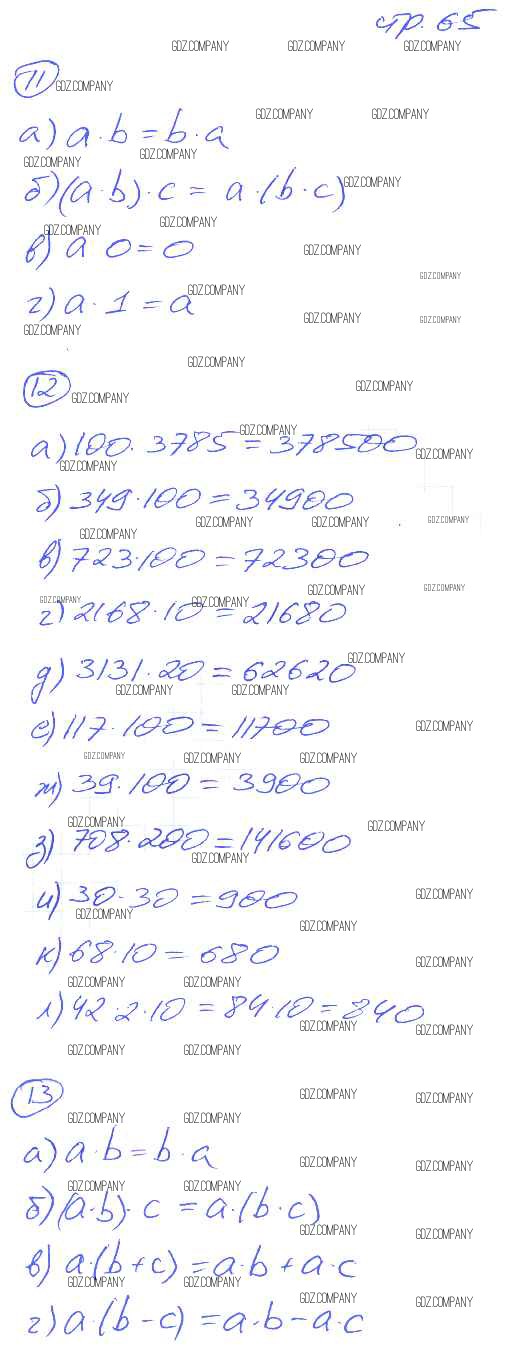 стр. 65
11
а) a · b = b · a
б) (a · b) · c = a · (b · c)
в) a 0 = 0
г) a · 1 = a
12
а) 100 · 3785 = 378500
б) 349 · 100 = 34900
в) 723 · 100 = 72300
г) 2168 · 10 = 21680
д) 3131 · 20 = 62620
е) 117 · 100 = 11700
ж) 39 · 100 = 3900
з) 708 · 200 = 141600
и) 30 · 30 = 900
к) 68 · 10 = 680
л) 42 · 2 · 10 = 84 · 10 = 840
13
а) a · b = b · a
б) (a · b) · c = a · (b · c)
в) a · (b + c) = a · b + a · c
г) a · (b - c) = a · b - a · c
GDZ.COMPANY